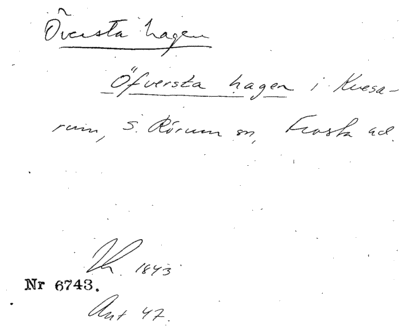 Översta hagen
Öfversta hagen i Kvesa-
rum, S. Rörum sn, Frosta hd.
1843
Nr 6743.
Ant 47.